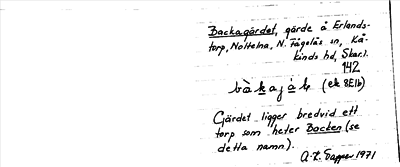 Backagärdet, gärde å Erlands-
torp, Noltelna, N. Fågelås sn, Kå-
kinds hd, Skar.l.
142
(ek 8E1b)
Gärdet ligger bredvid ett
torp som heter Backen (se
detta namn).
1971